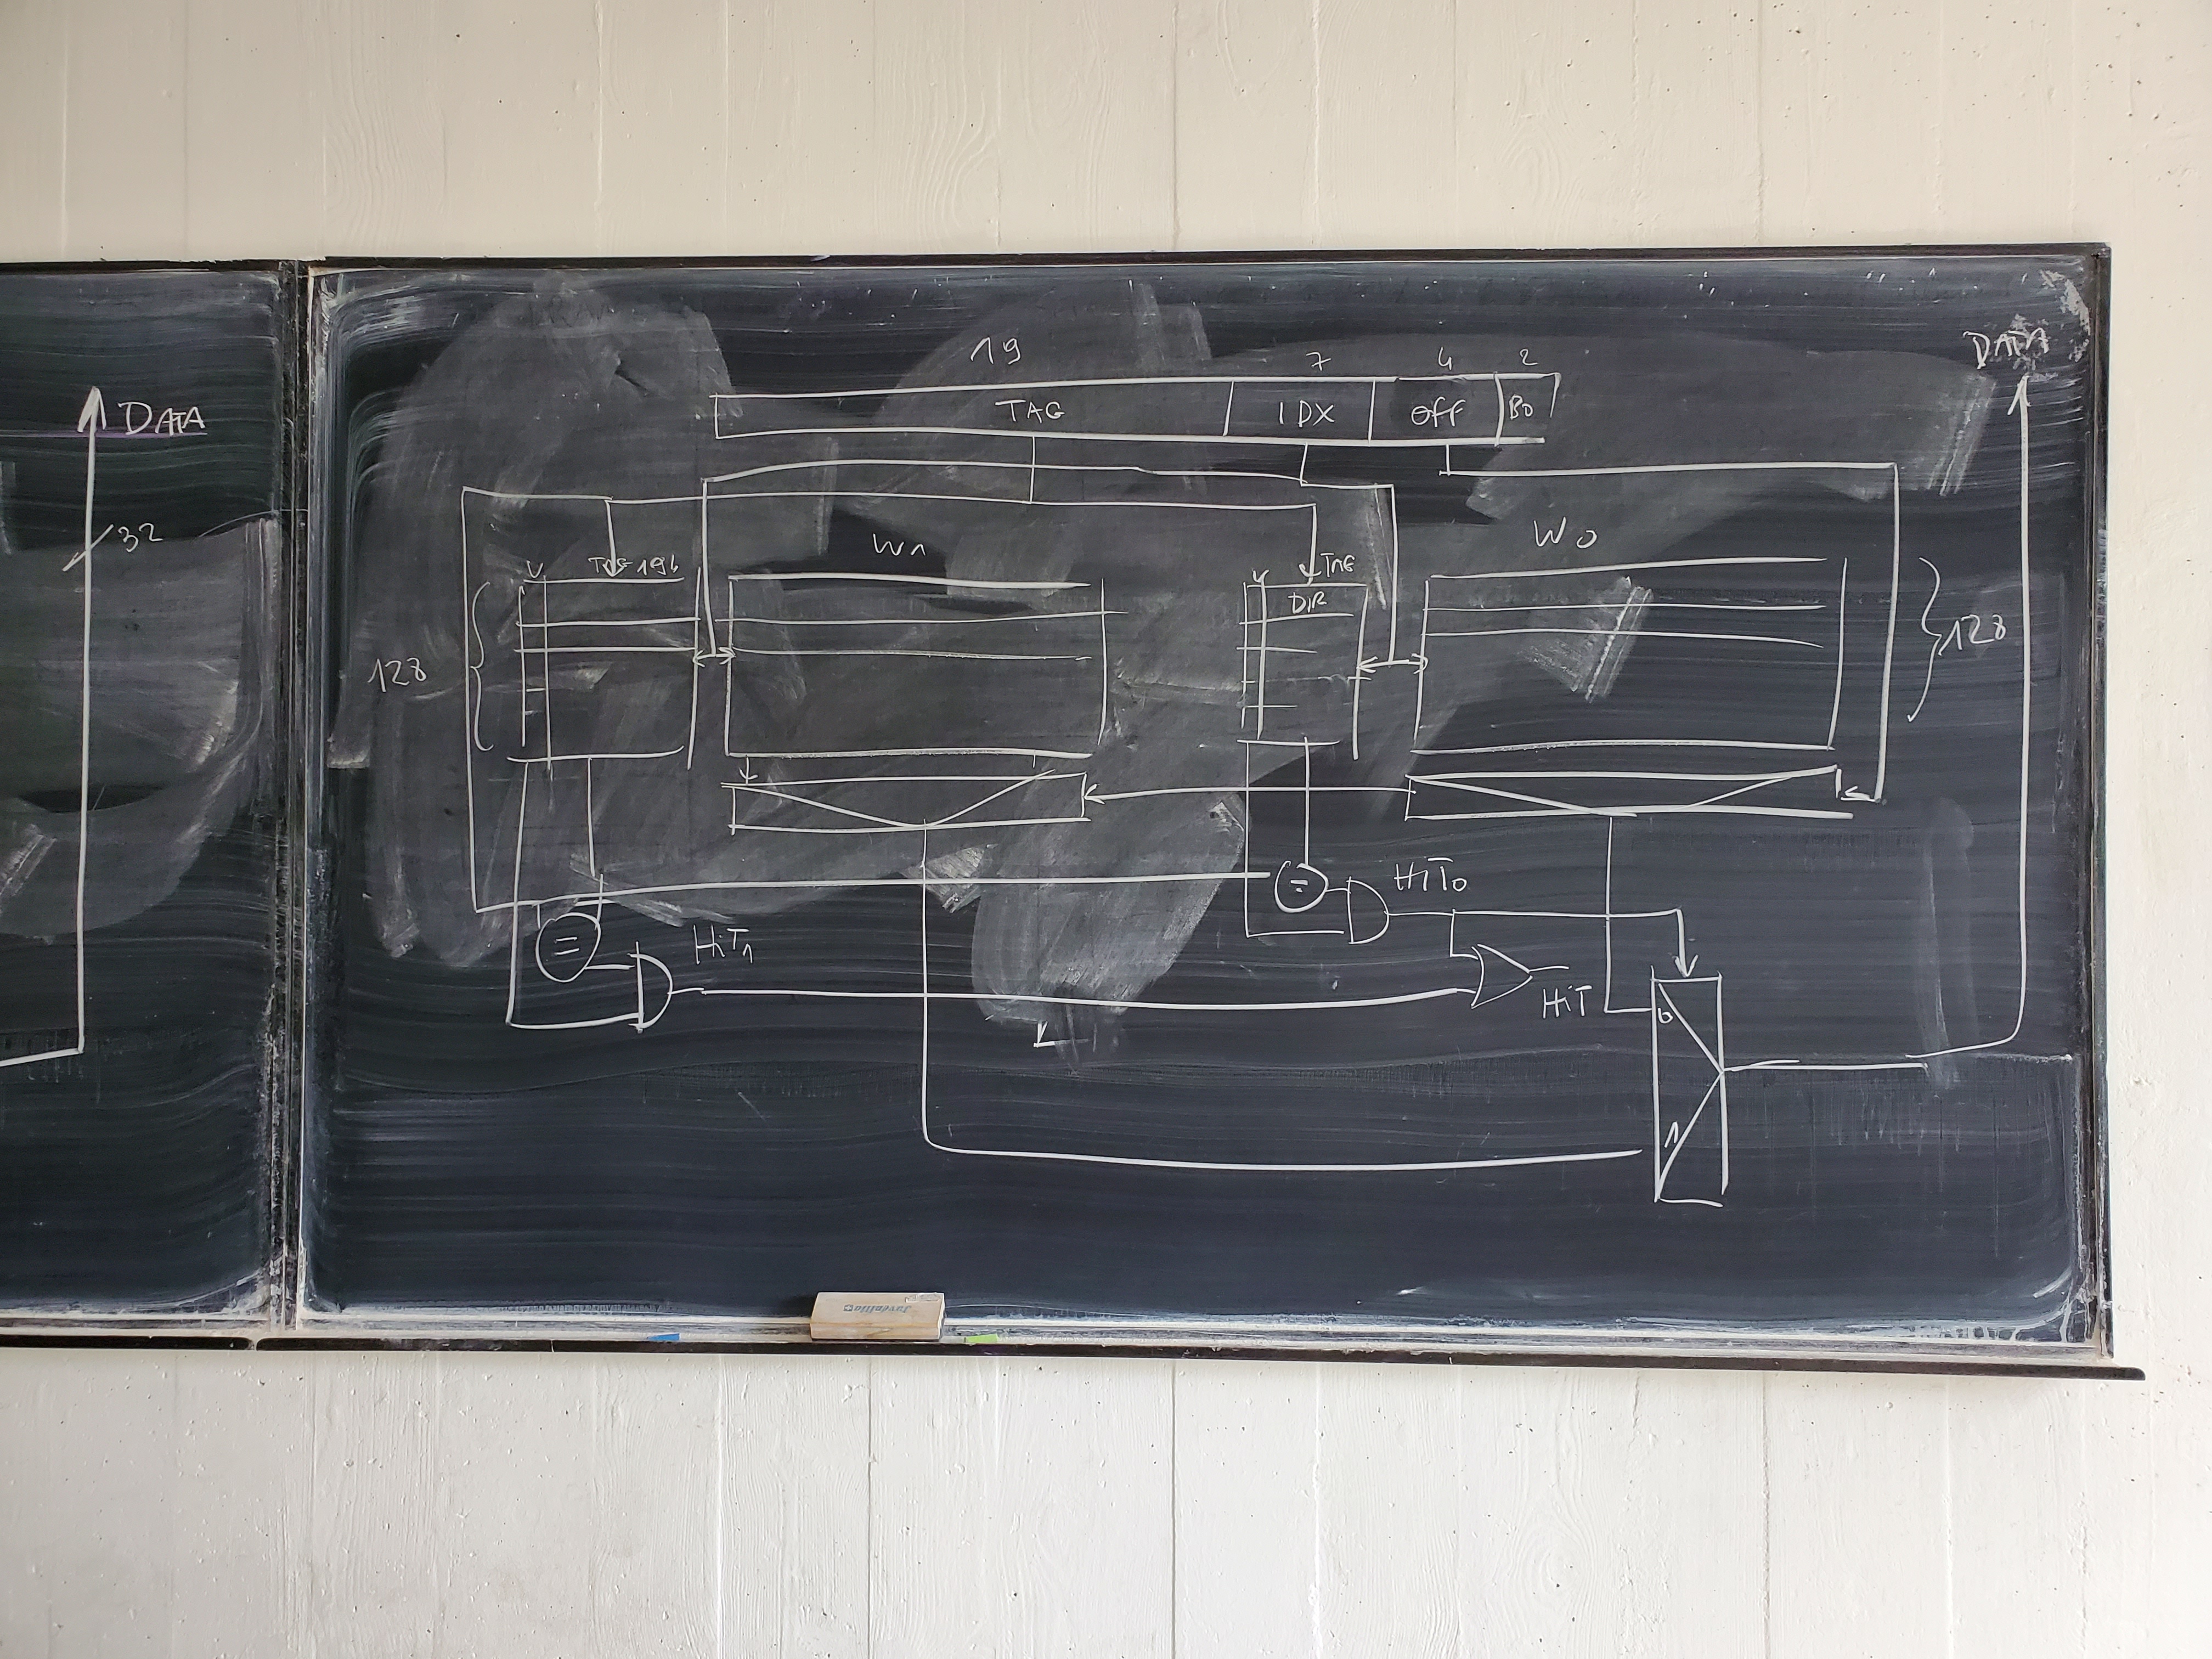 DATA
32
DATA
19 7 4 2
TAG IDX OFF BO
W1
W0
V TAG 19b
V TAG
DIR
128
128
=
=
HiT0
HiT1
HiT
0
1
Juventia